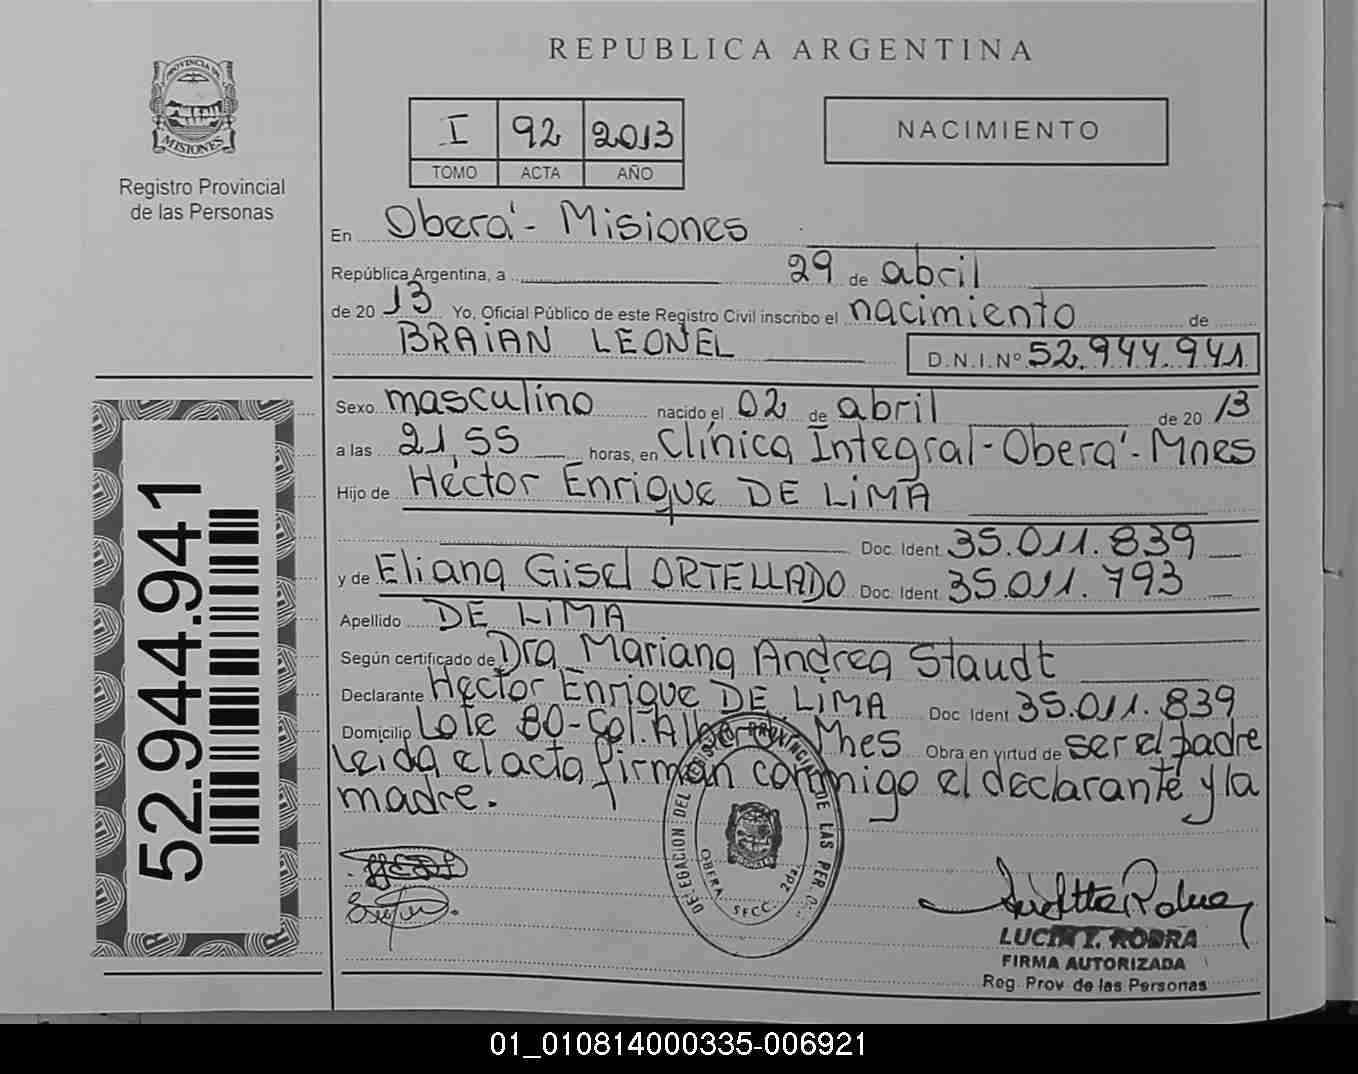 REPUBLICA ARGENTINA
PROVINCIA DE
MISIONES
Registro Provincial
de las Personas
I 92 2013
TOMO ACTA AÑO
NACIMIENTO
En Oberá - Misiones
República Argentina, a 29 de abril
de 20 13 Yo, Oficial Público de este Registro Civil inscribo el nacimiento de
BRAIAN LEONEL D.N.I.Nº 52.944.941
Sexo masculino nacido el 02 de abril de 20 13
a las 21,55 horas, en Clínica Integral - Oberá - Mnes
Hijo de Héctor Enrique DE LIMA
Doc. Ident. 35.011.839
y de Eliana Gisel ORTELLADO Doc. Ident. 35.011.793
Apellido DE LIMA
Según certificado de Dra Mariana Andrea Staudt
Declarante Héctor Enrique DE LIMA Doc Ident 35.011.839
Domicilio Lote 80 - Col. Mnes Obra en virtud de ser el padre
Leida el acta firman conmigo el declarante y la
madre.
52.944.941
DELEGACION DEL REGISTRO PROVINCIAL DE LAS PER
OBERA SECC. 2da.
RODRA
FIRMA AUTORIZADA
Reg. Prov de las Personas
01_010814000335-006921